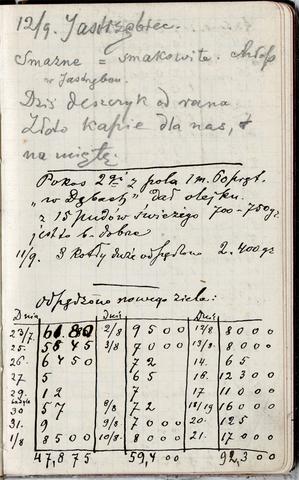 12/9. Jastrzębiec.
Smażne = smakowite. Chłop
w Jastrzębcu.
Dziś deszczyk od rana
Złoto kapie dla nas, &
na miętę.
Pokos 2gi z pola 1 m.
"w Dębach" Dał olejku.
z 15 pudów świeżego 700-750 gr
jest to b. dobrze
11/9. 3 Kotły duże odpędzono 2.400 gr
Odpędzono nowego ziela:
Dnia Dnia Dnia
23/7. 2/8 9500 12/8 8000
25. 5645 3/8 7000 13/8. 8000
26. 6450 72 14. 65
27. 5 65 16. 12300
29. 12 7 17 11000
30 57 6/8 72 18/19 16000
31. 9 9/8 7000 20. 125
1/8 8500 10/8. 8000 21. 17000
47,875 59,400 92,300